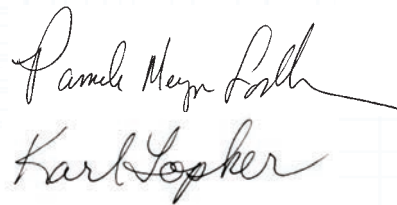 Pamela Meyer Lopker
Karl Lopker